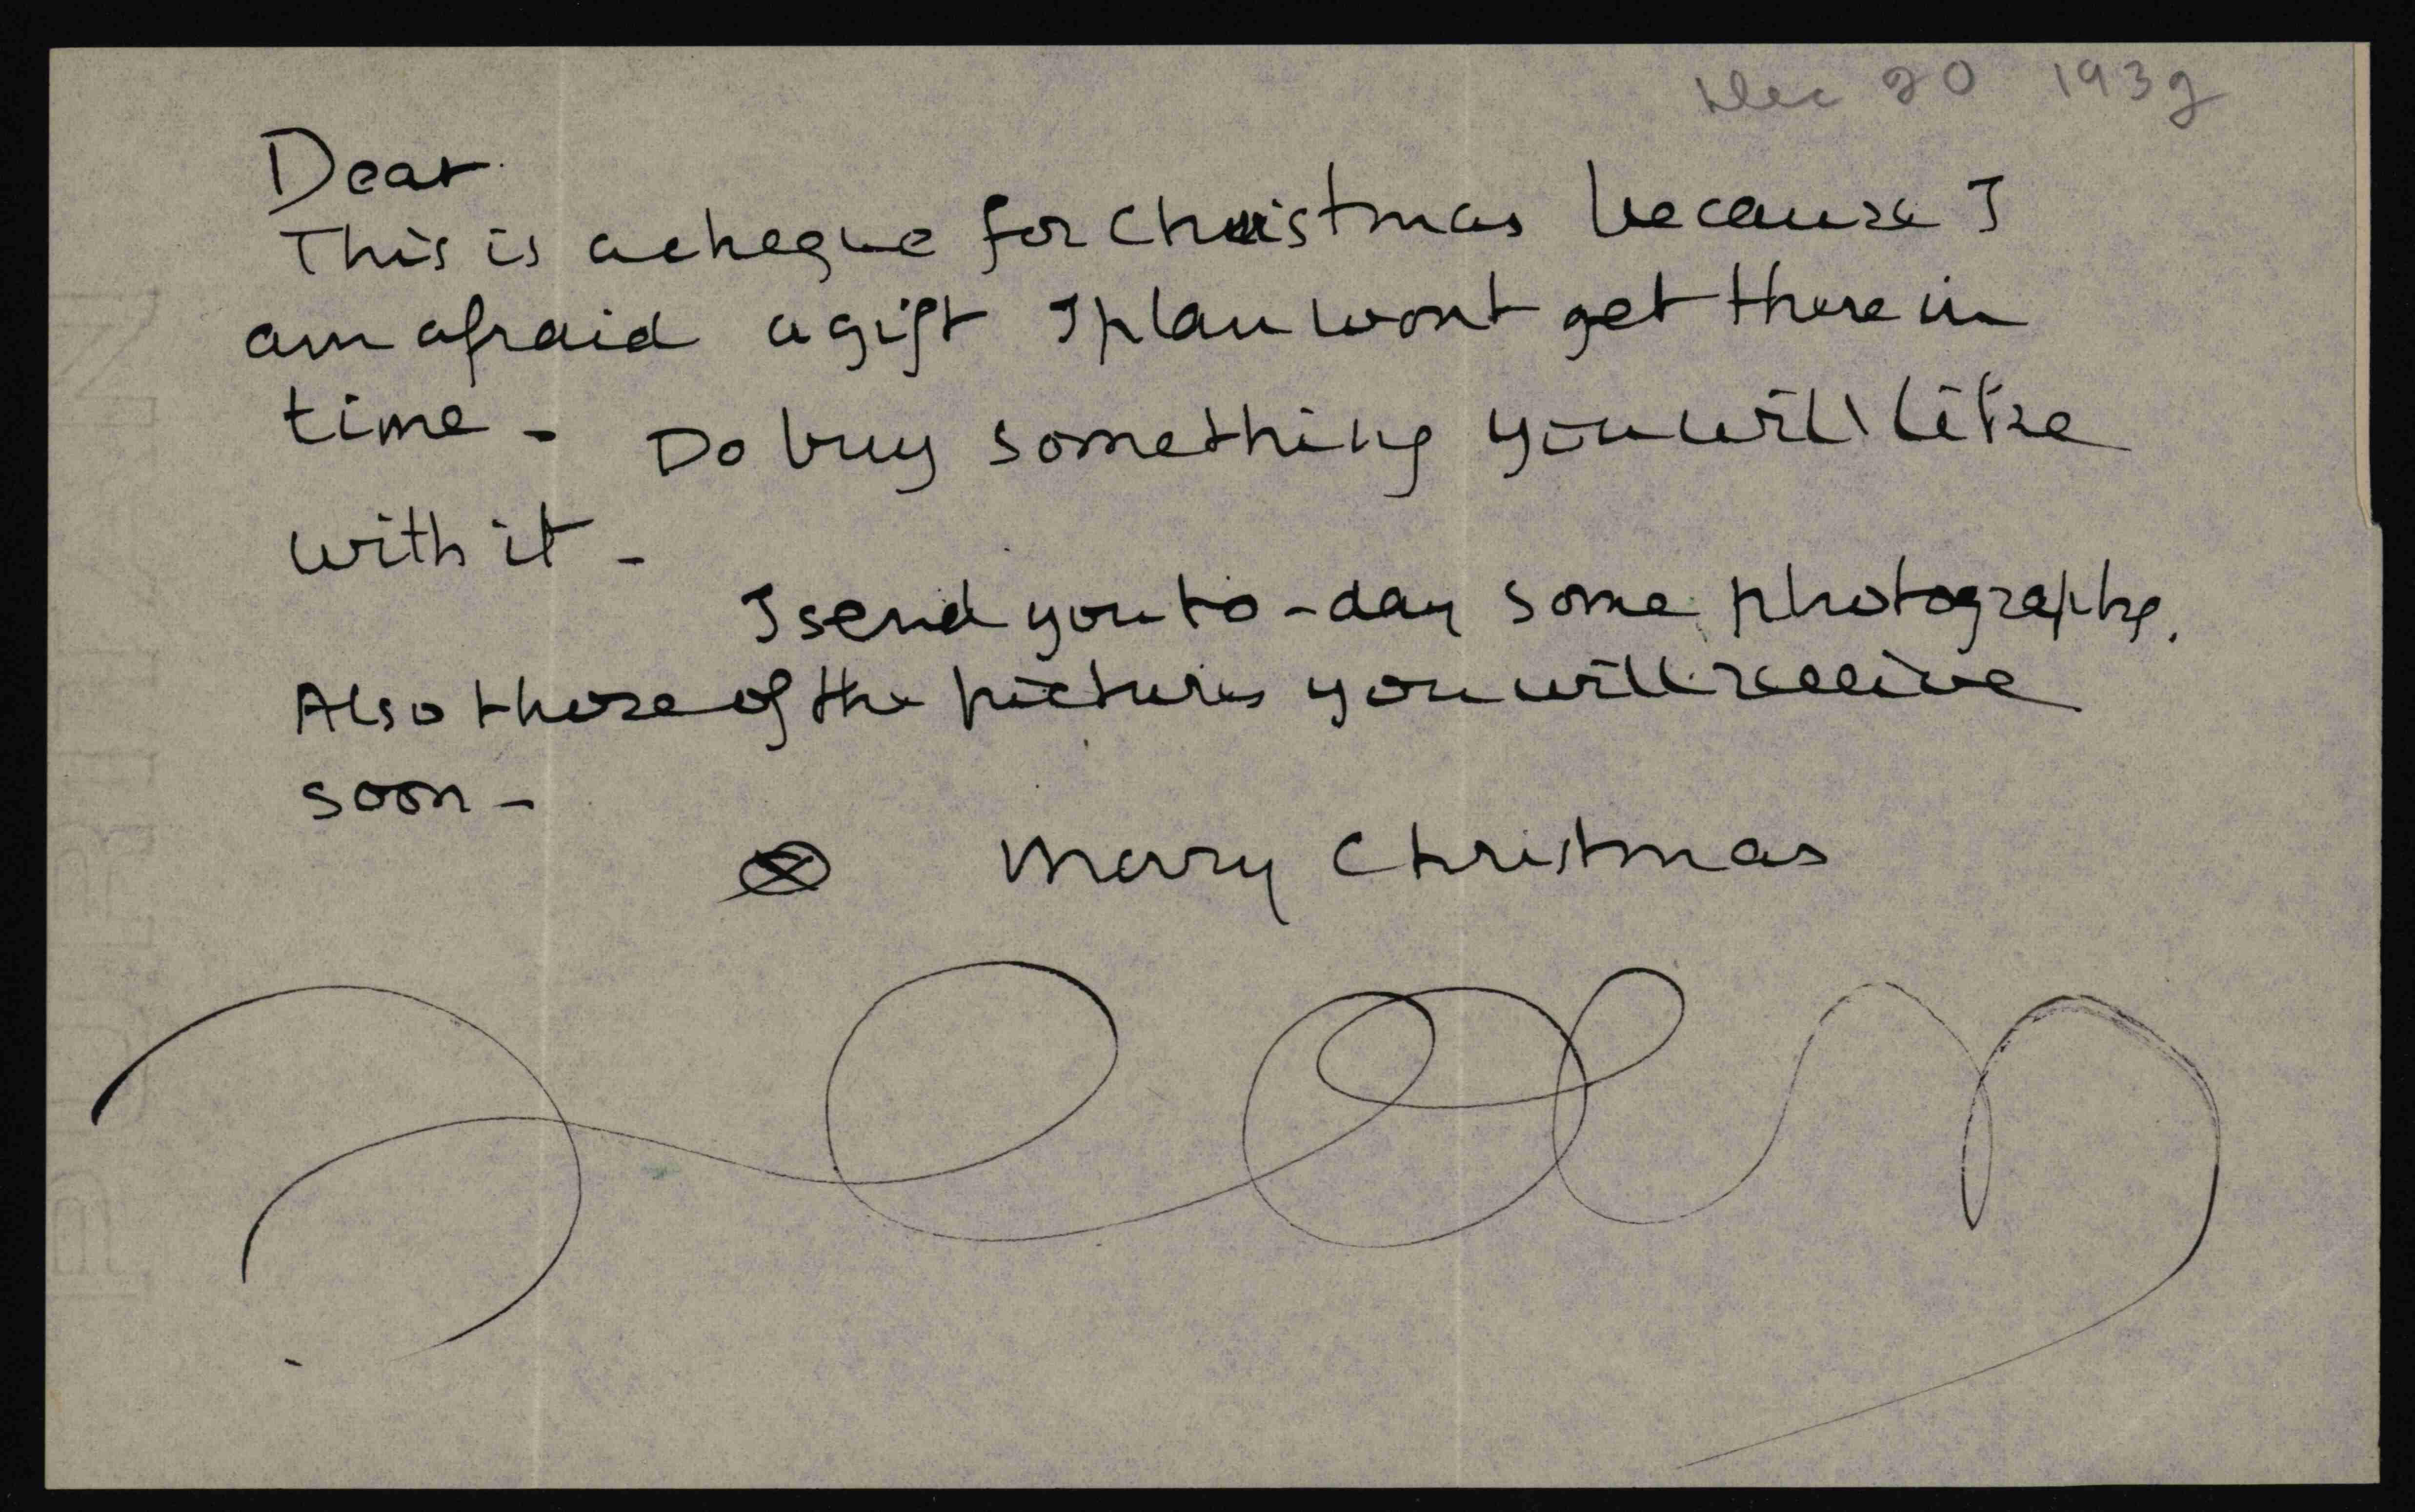 Dec 20 1932
Dear
This is a cheque for Christmas because I
am afraid a gift I plan wont get there in
time - Do buy something you will like
with it -
I send you to-day some photographs.
Also those of the pictures you will receive
soon -
Merry Christmas